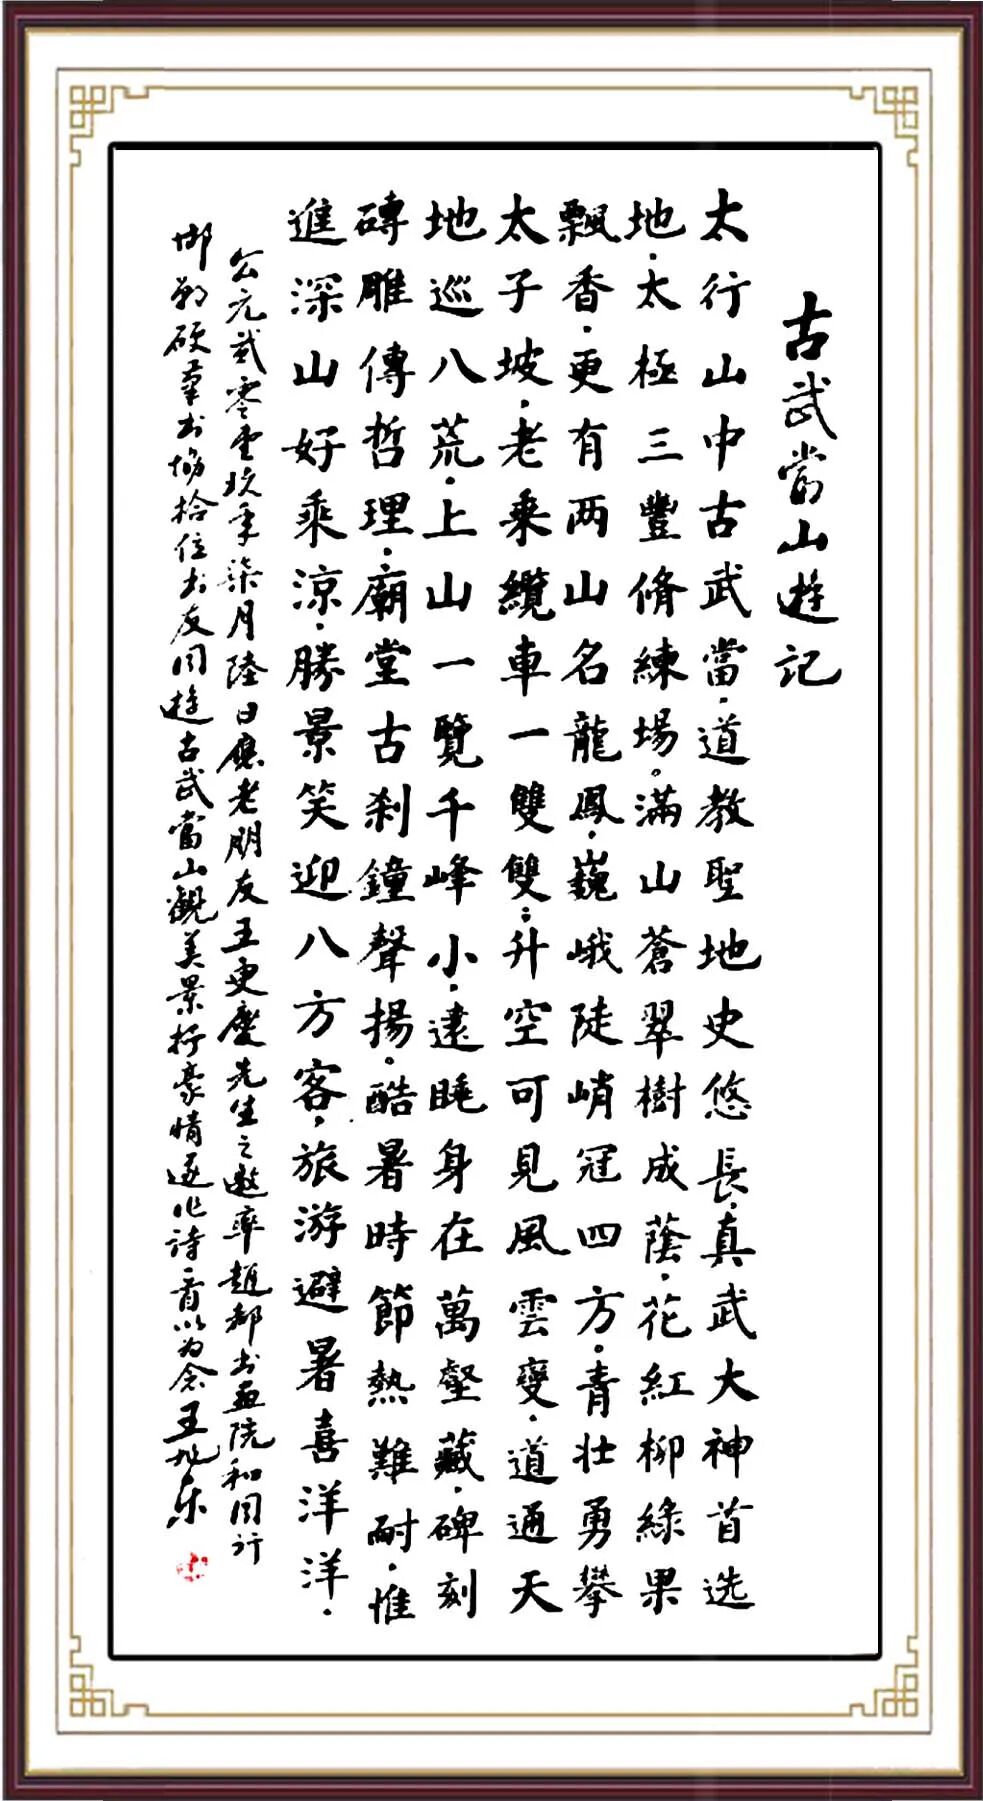 古武當山遊記
太行山中古武當，道教聖地史悠長，真武大神首选
地，太極三豐脩練場。滿山蒼翠樹成蔭，花紅柳綠果
飄香，更有两山名龍鳳，巍峨陡峭冠四方。青壯勇攀
太子坡，老乘纜車一雙雙；升空可見風雲變，道通天
地巡八荒，上山一覽千峰小，遠睡身在萬壑藏，碑刻
磚雕傳哲理，廟堂古刹鐘聲揚。酷暑時節熱難耐，惟
進深山好乘涼，勝景笑迎八方客，旅游避暑喜洋洋，
公元貳零壹玖年柒月陸日應老朋友王更慶先生之邀率趙都书画院和同行
邯鄲硬筆书協拾位书友同遊古武當山觀美景抒豪情遂作詩一首以为念王旭东